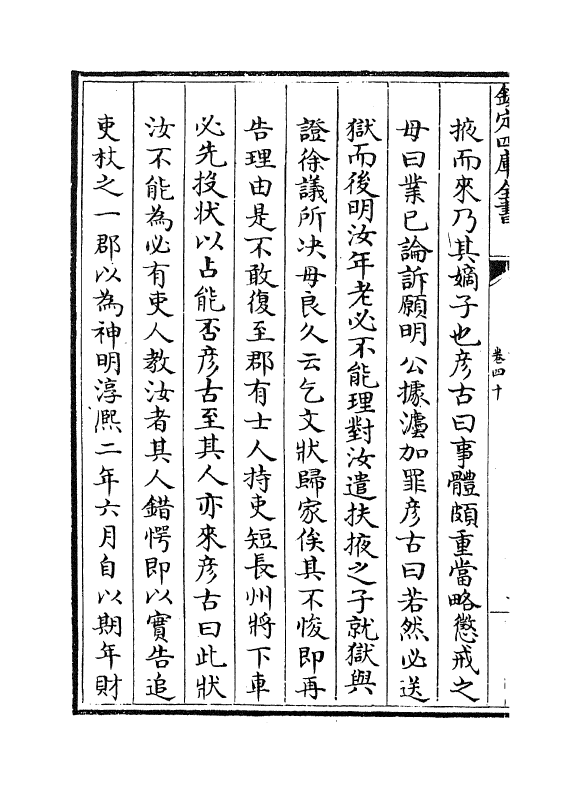 欽定四庫全書
卷四十
掖而來乃其嫡子也彦古曰事體頗重當略懲戒之
母曰業已論訴願明公據灋加罪彦古曰若然必送
獄而後明汝年老必不能理對汝遣扶掖之子就獄與
證徐議所决母良久云乞文狀歸家俟其不悛即再
告理由是不敢復至郡有士人持吏短長州將下車
必先投状以占能否彦古至其人亦來彦古曰此狀
汝不能為必有吏人教汝者其人錯愕即以實告追
吏杖之一郡以為神明淳熈二年六月自以期年財